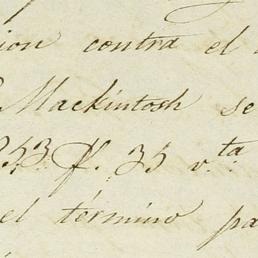 ion contra el
Mackintosh se
253 f. 35 v.ta
el término pa